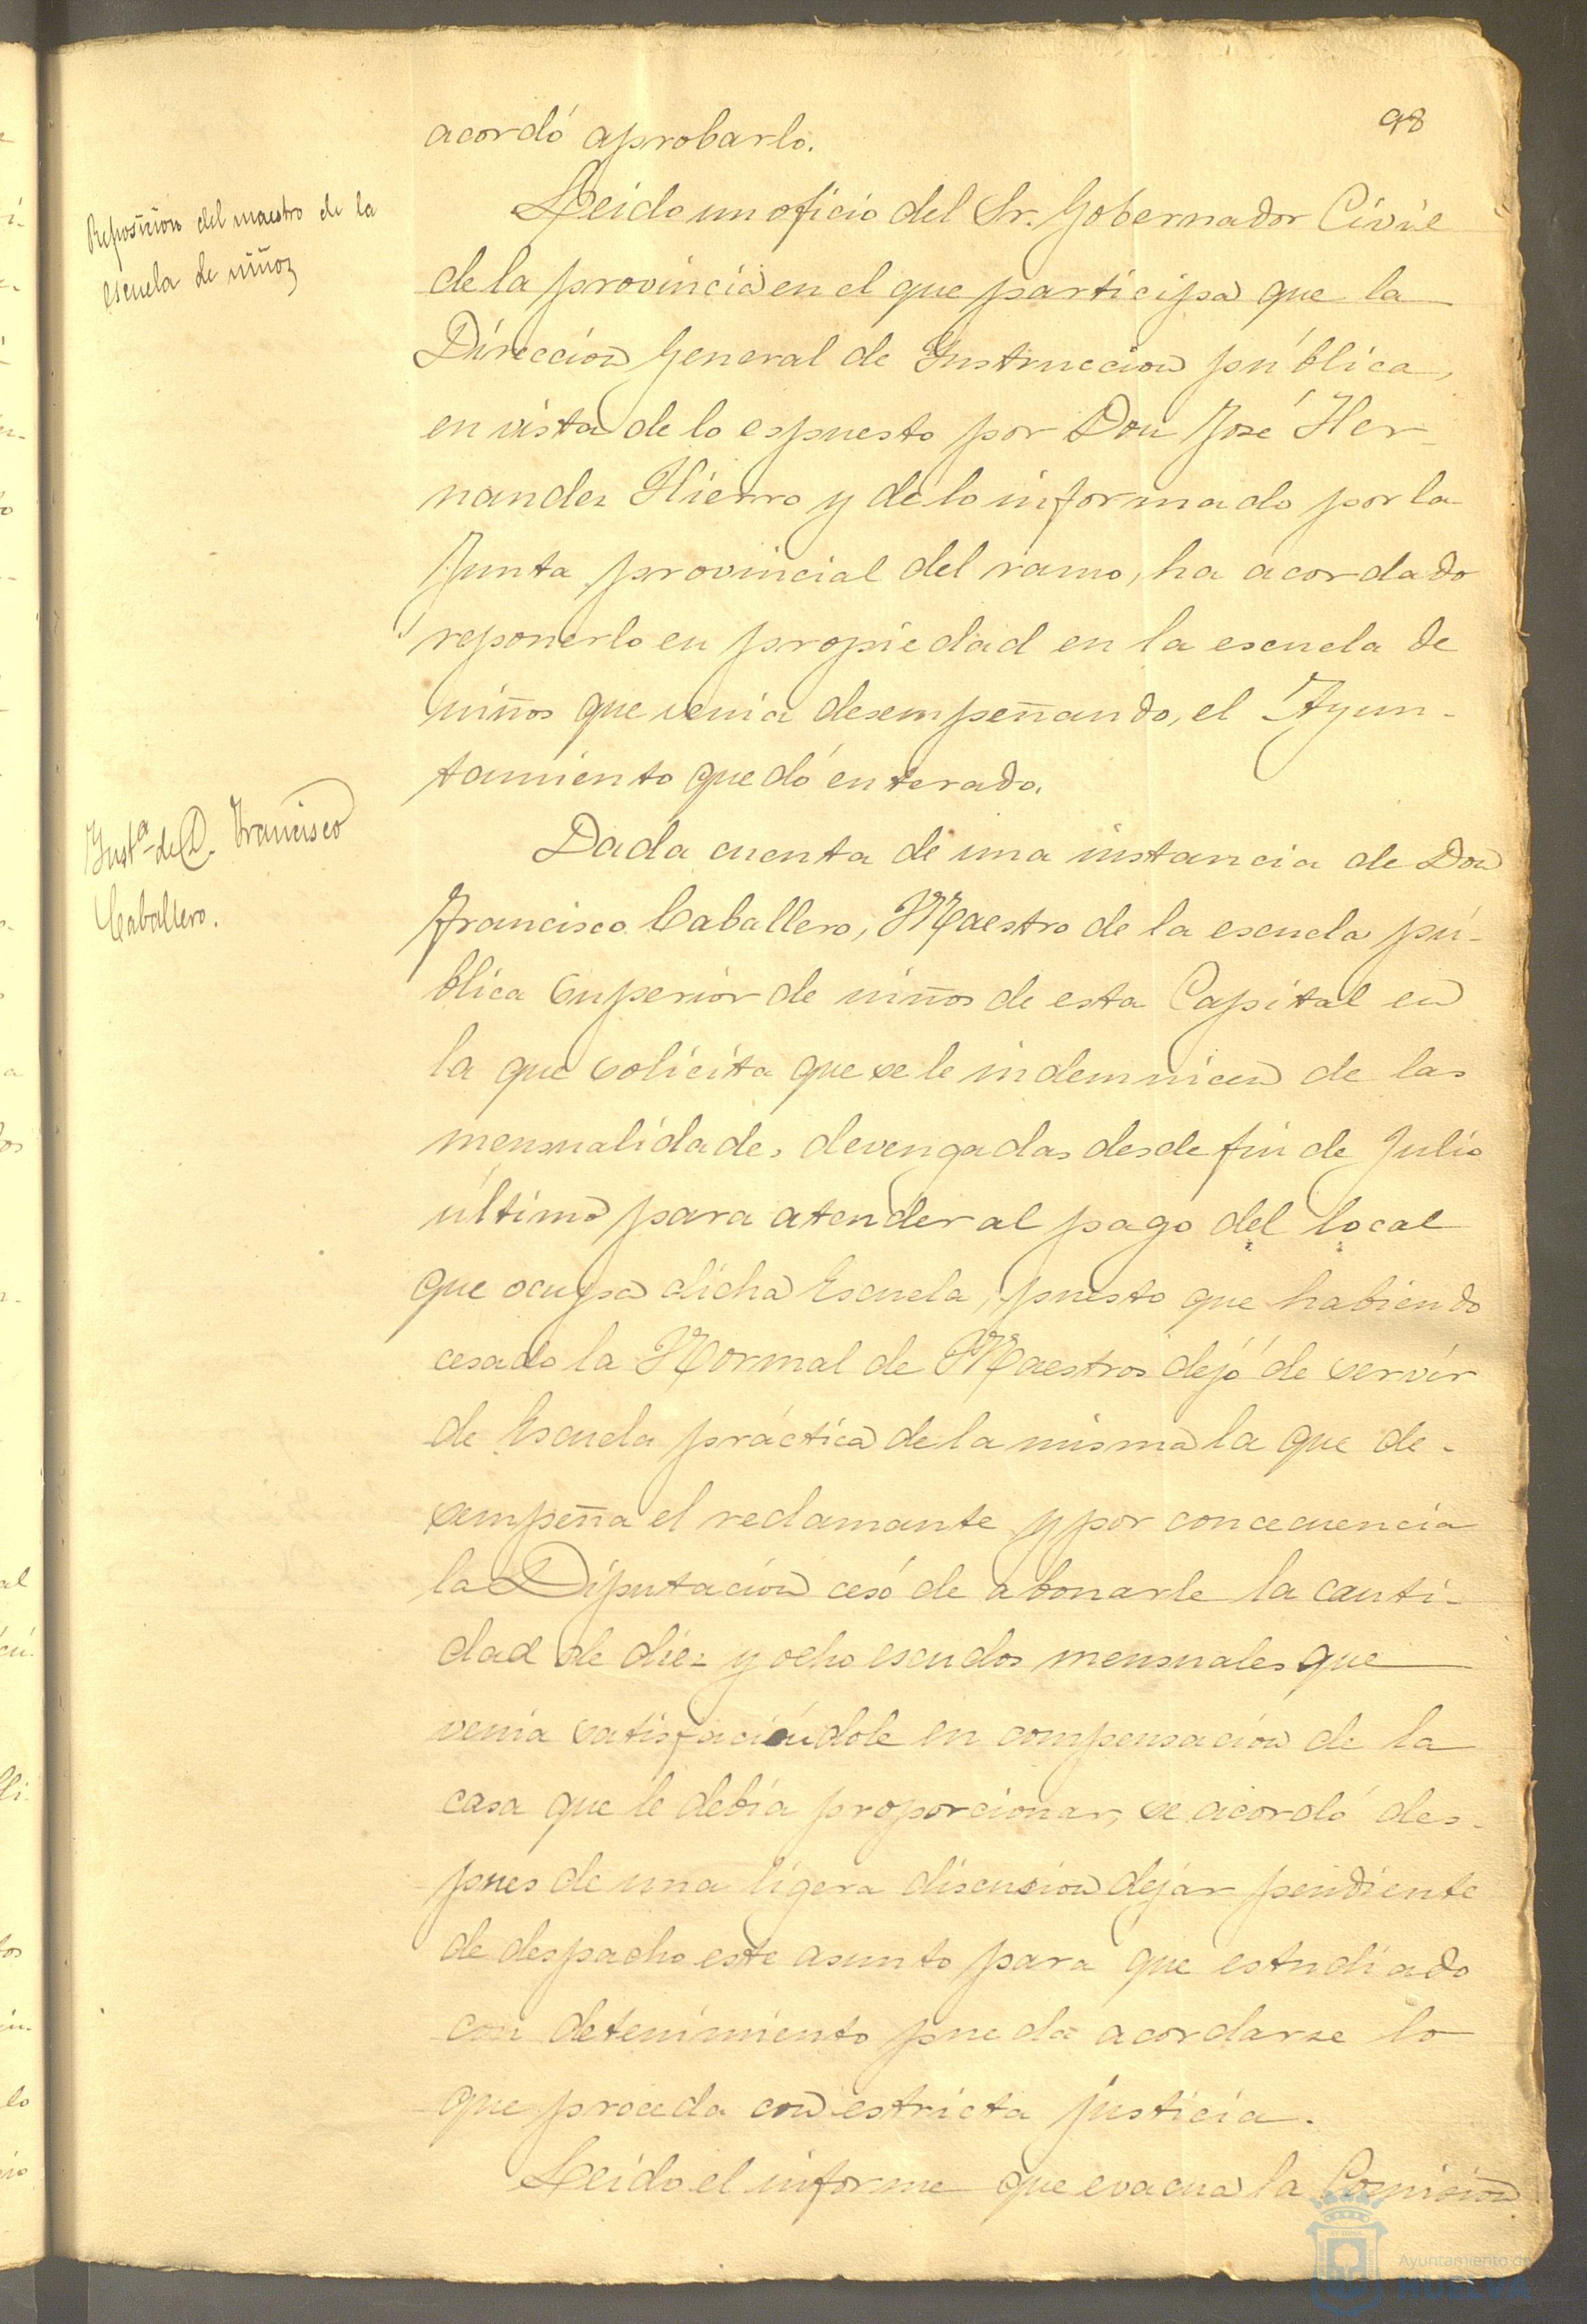 98
acordó aprobarlo.
Reposicion del maestro de la
escuela de niños
Leido un oficio del Sr. Gobernador Civil
de la provincia en el que participa que la
Direccion General de Instruccion pública,
en vista de lo espuesto por Don José Her-
nandez Hierro y de lo informado por la
Junta provincial del ramo, ha acordado
reponerlo en propiedad en la escuela de
niños que venia desempeñando, el Ayun-
tamiento quedó enterado.
Instª de D. Francisco
Caballero.
Dada cuenta de una instancia de Don
Francisco Caballero, Maestro de la escuela pú-
blica superior de niños de esta Capital en
la que solicita que se le indemnicen de las
mensualidades devengadas desde fin de Julio
último para atender al pago del local
que ocupa dicha Escuela, puesto que habiendo
cesado la Normal de Maestros dejó de servir
de Escuela práctica de la misma la que de-
sempeña el reclamante y por concecuencia
la Diputacion cesó de abonarle la canti-
dad de diez y ocho escudos mensuales que
venia satisfaciéndole en compensacion de la
casa que le debia proporcionar, se acordó des-
pues de una ligera discusion dejar pendiente
de despacho este asunto para que estudiado
con detenimiento pueda acordarse lo
que proceda con estricta justicia.
Leido el informe que evacua la Comision
Ayuntamiento de
HUELVA